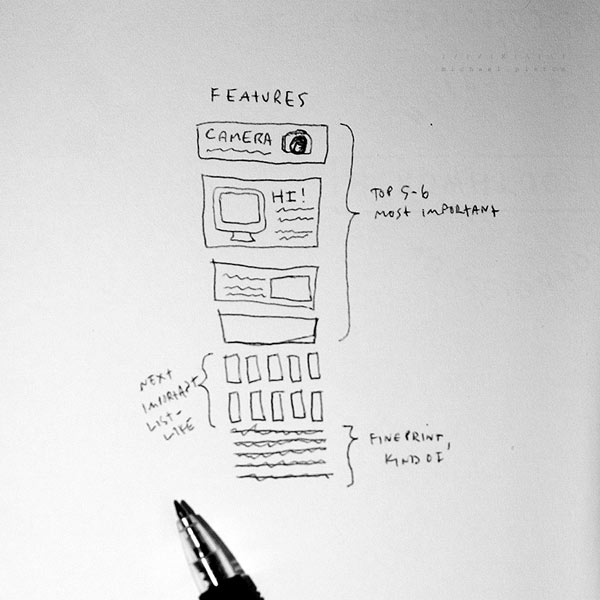 FEATURES
CAMERA
HI!
TOP 5-6
MOST IMPORTANT
NEXT
IMPORTANT
LIST-
LIFE
FINEPRINT,
KIND OF